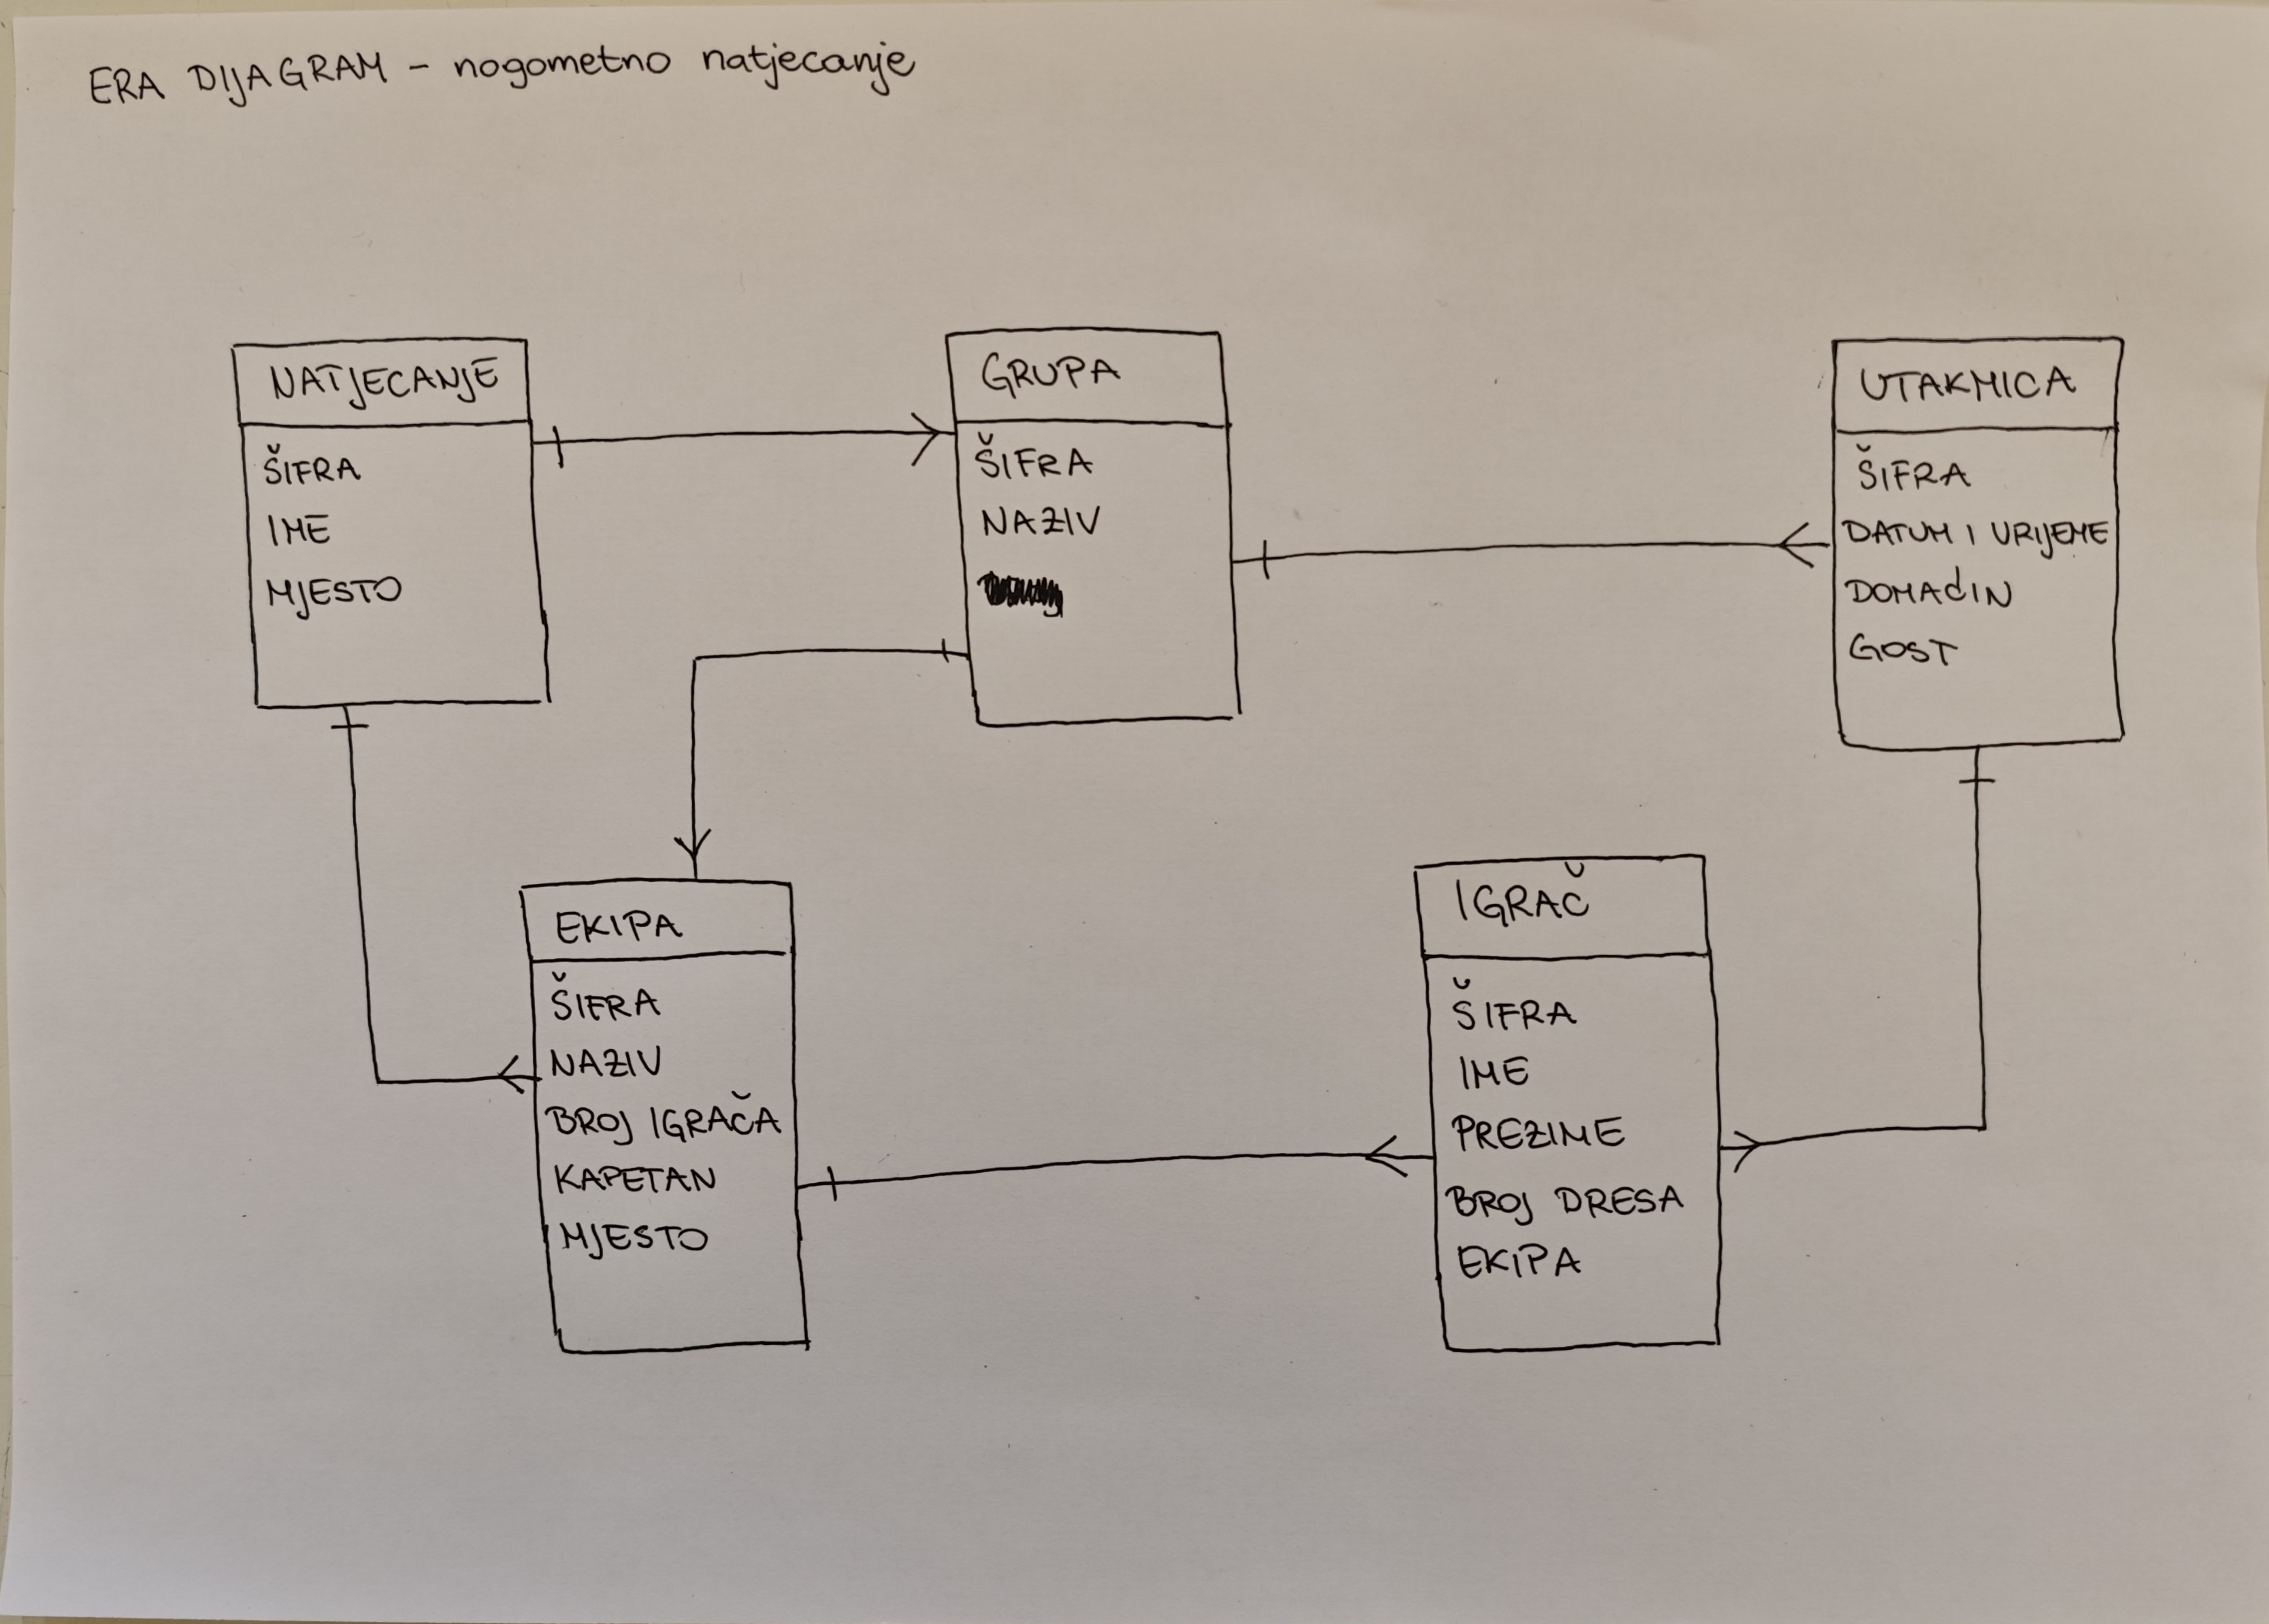 ERA DIJAGRAM - nogometno natjecanje
NATJECANJE
ŠIFRA
IME
MJESTO
GRUPA
ŠIFRA
NAZIV
UTAKMICA
ŠIFRA
DATUM I VRIJEME
DOMAĆIN
GOST
EKIPA
ŠIFRA
NAZIV
BROJ IGRAČA
KAPETAN
MJESTO
IGRAČ
ŠIFRA
IME
PREZIME
BROJ DRESA
EKIPA